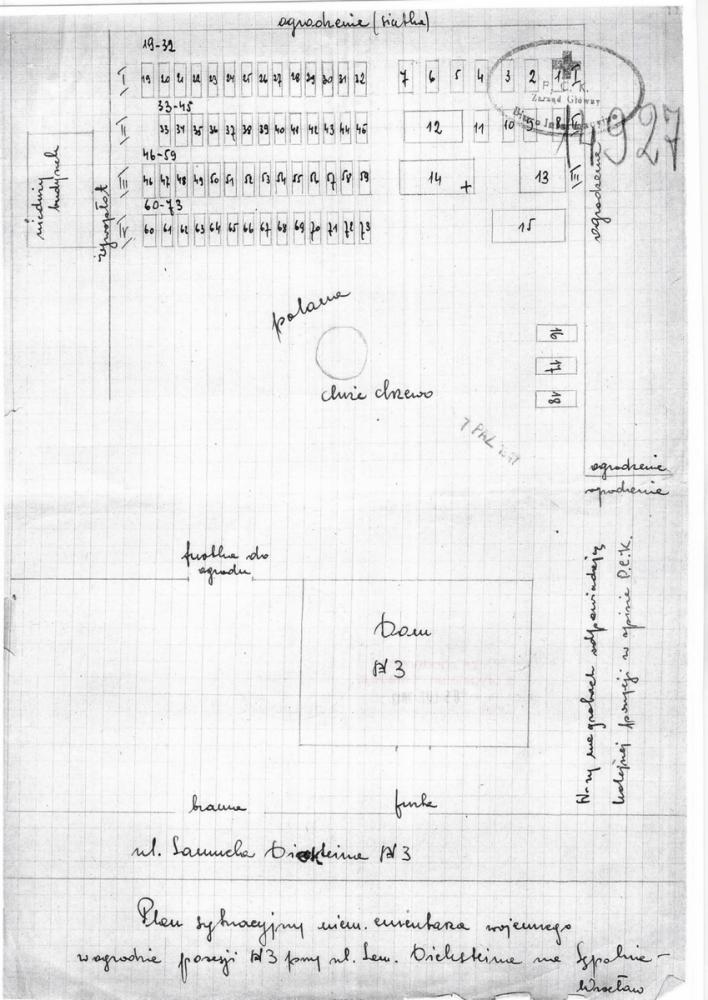 ogrodzenie (siatka)
19-32
I 19 20 21 22 23 24 25 26 27 28 29 30 31 32 7 6 5 4 3 2 1 I
P. C. K.
Zarząd Główny
Biuro Informacyjne
1927
33-45
II 33 34 35 36 37 38 39 40 41 42 43 44 45 12 11 10 9 8
46-59
III 46 47 48 49 50 51 52 53 54 55 56 57 58 59 14 + 13 III
60-73
IV 60 61 62 63 64 65 66 67 68 69 70 71 72 73 15
budynek
żywopłot
ogrodzenie
polana
16
17
18
duże drzewo
7 PAŹ
ogrodzenie
ogrodzenie
furtka do
ogrodu
Dom
N 3
N-ry na grobach odpowiadają
kolejnej pozycji w spisie P.C.K.
brama furtka
ul. Samuela Dicksteina N 3
Plan sytuacyjny niem. cmentarza wojennego
w ogrodzie posesji N 3 przy ul. Sam. Dicksteina na Sępolnie -
Wrocław